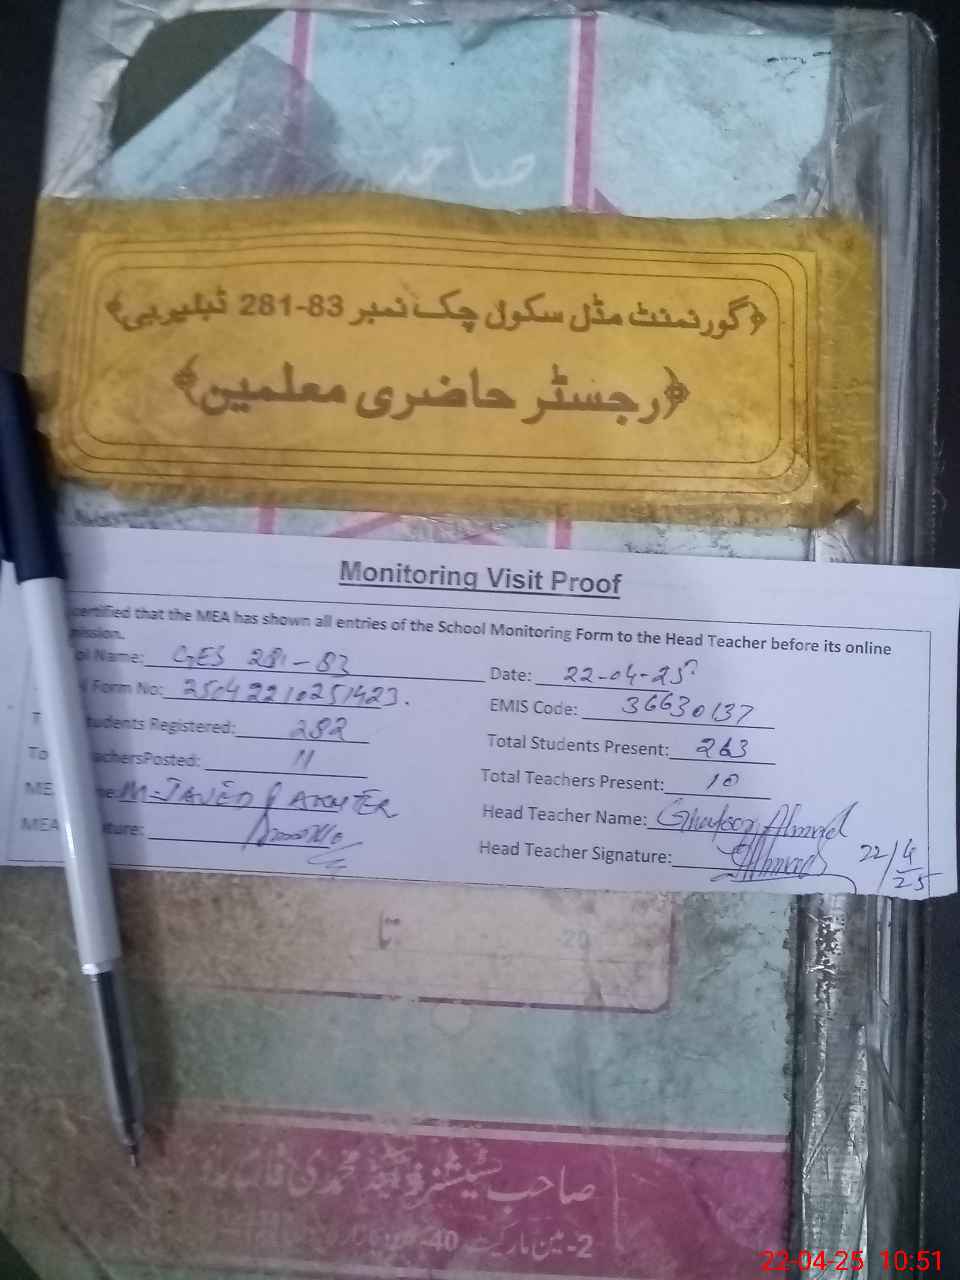 صاحب
﴿گورنمنٹ مڈل سکول چک نمبر 83-281 ٹبلیو بی﴾
﴿رجسٹر حاضری معلمین﴾
Monitoring Visit Proof
certified that the MEA has shown all entries of the School Monitoring Form to the Head Teacher before its online
mission.
ol Name: GES 281-83 Date: 22-04-25
Form No: 25042210251423. EMIS Code: 36630137
T udents Registered: 282 Total Students Present: 263
To achersPosted: 11 Total Teachers Present: 10
ME e: M-JAVED AKHTER Head Teacher Name: Ghafoor Ahmad
MEA ature: Head Teacher Signature: Ahmad 22/4/25
تا -20
صاحب سٹیشنرز اینڈ محمدی
2-مین مارکیٹ 40
22-04-25 10:51